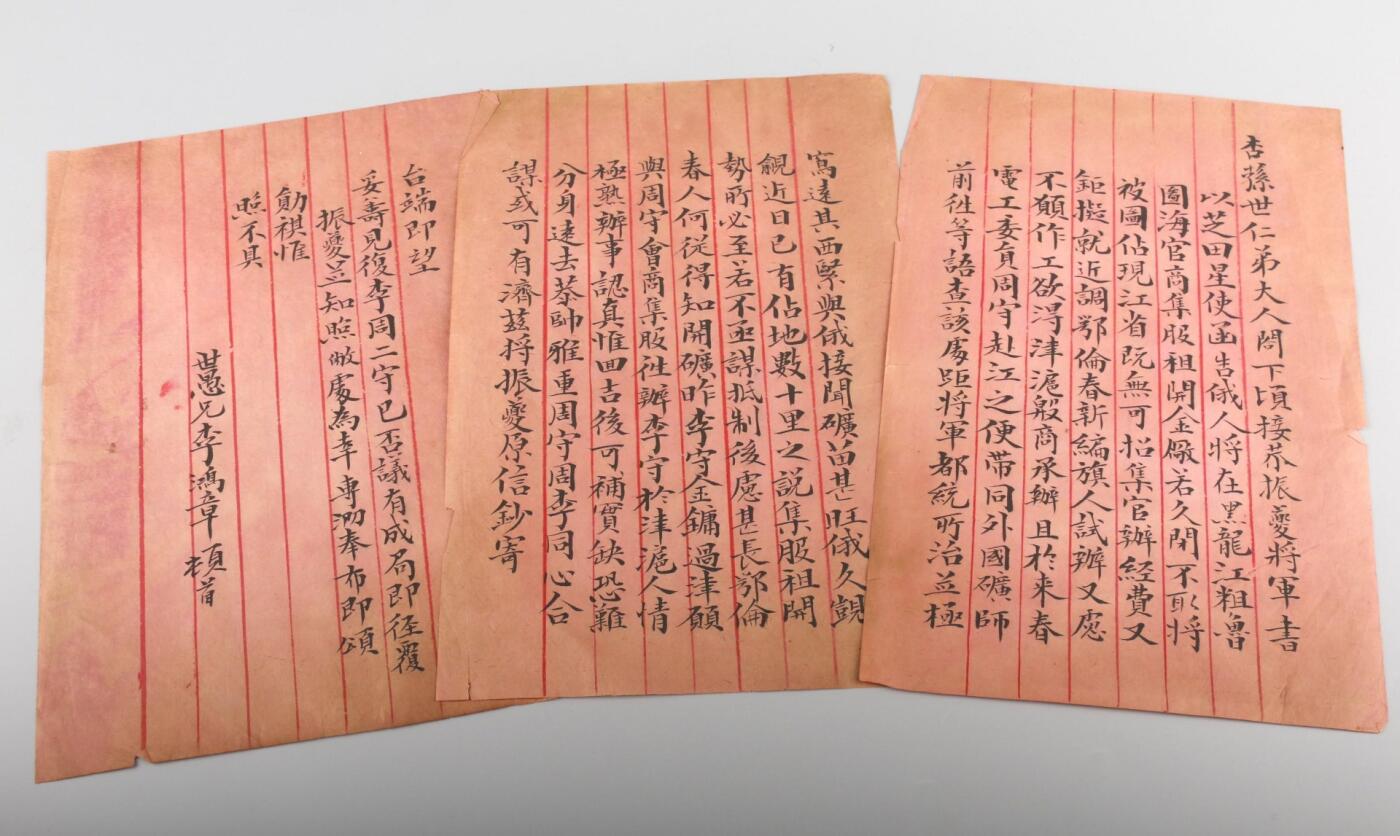 杏蓀世仁弟大人閤下頃接恭振夔將軍書
以芝田星使函告俄人將在黑龍江粗魯
圖海官商集股租開金廠若久閉不取將
被圖佔現江省既無可招集官辦經費又
鉅擬就近調鄂倫春新編旗人試辦又慮
不願作工欲淂津滬殷商承辦且扵来春
電工委員周守赴江之便帶同外國礦師
前徃等語查該處距將軍都統所治並極
窵遠其西緊與俄接聞礦苗甚旺俄久覬
覦近日已有佔地數十里之説集股租開
勢所必至若不亟謀抵制後慮甚長鄂倫
春人何從得知開礦昨李守金鏞過津願
與周守會商集股徃辦李守扵津滬人情
極熟辦事認真惟回吉後可補實缺恐難
分身遠去恭帥雅重周守周李同心合
謀或可有濟茲将振夔原信鈔寄
台端即望
妥壽見復李周二守已否議有成局即徑覆
振夔並知照敝處為幸専泐奉布即頌
勛祺惟
照不具
世愚兄李鴻章頓首